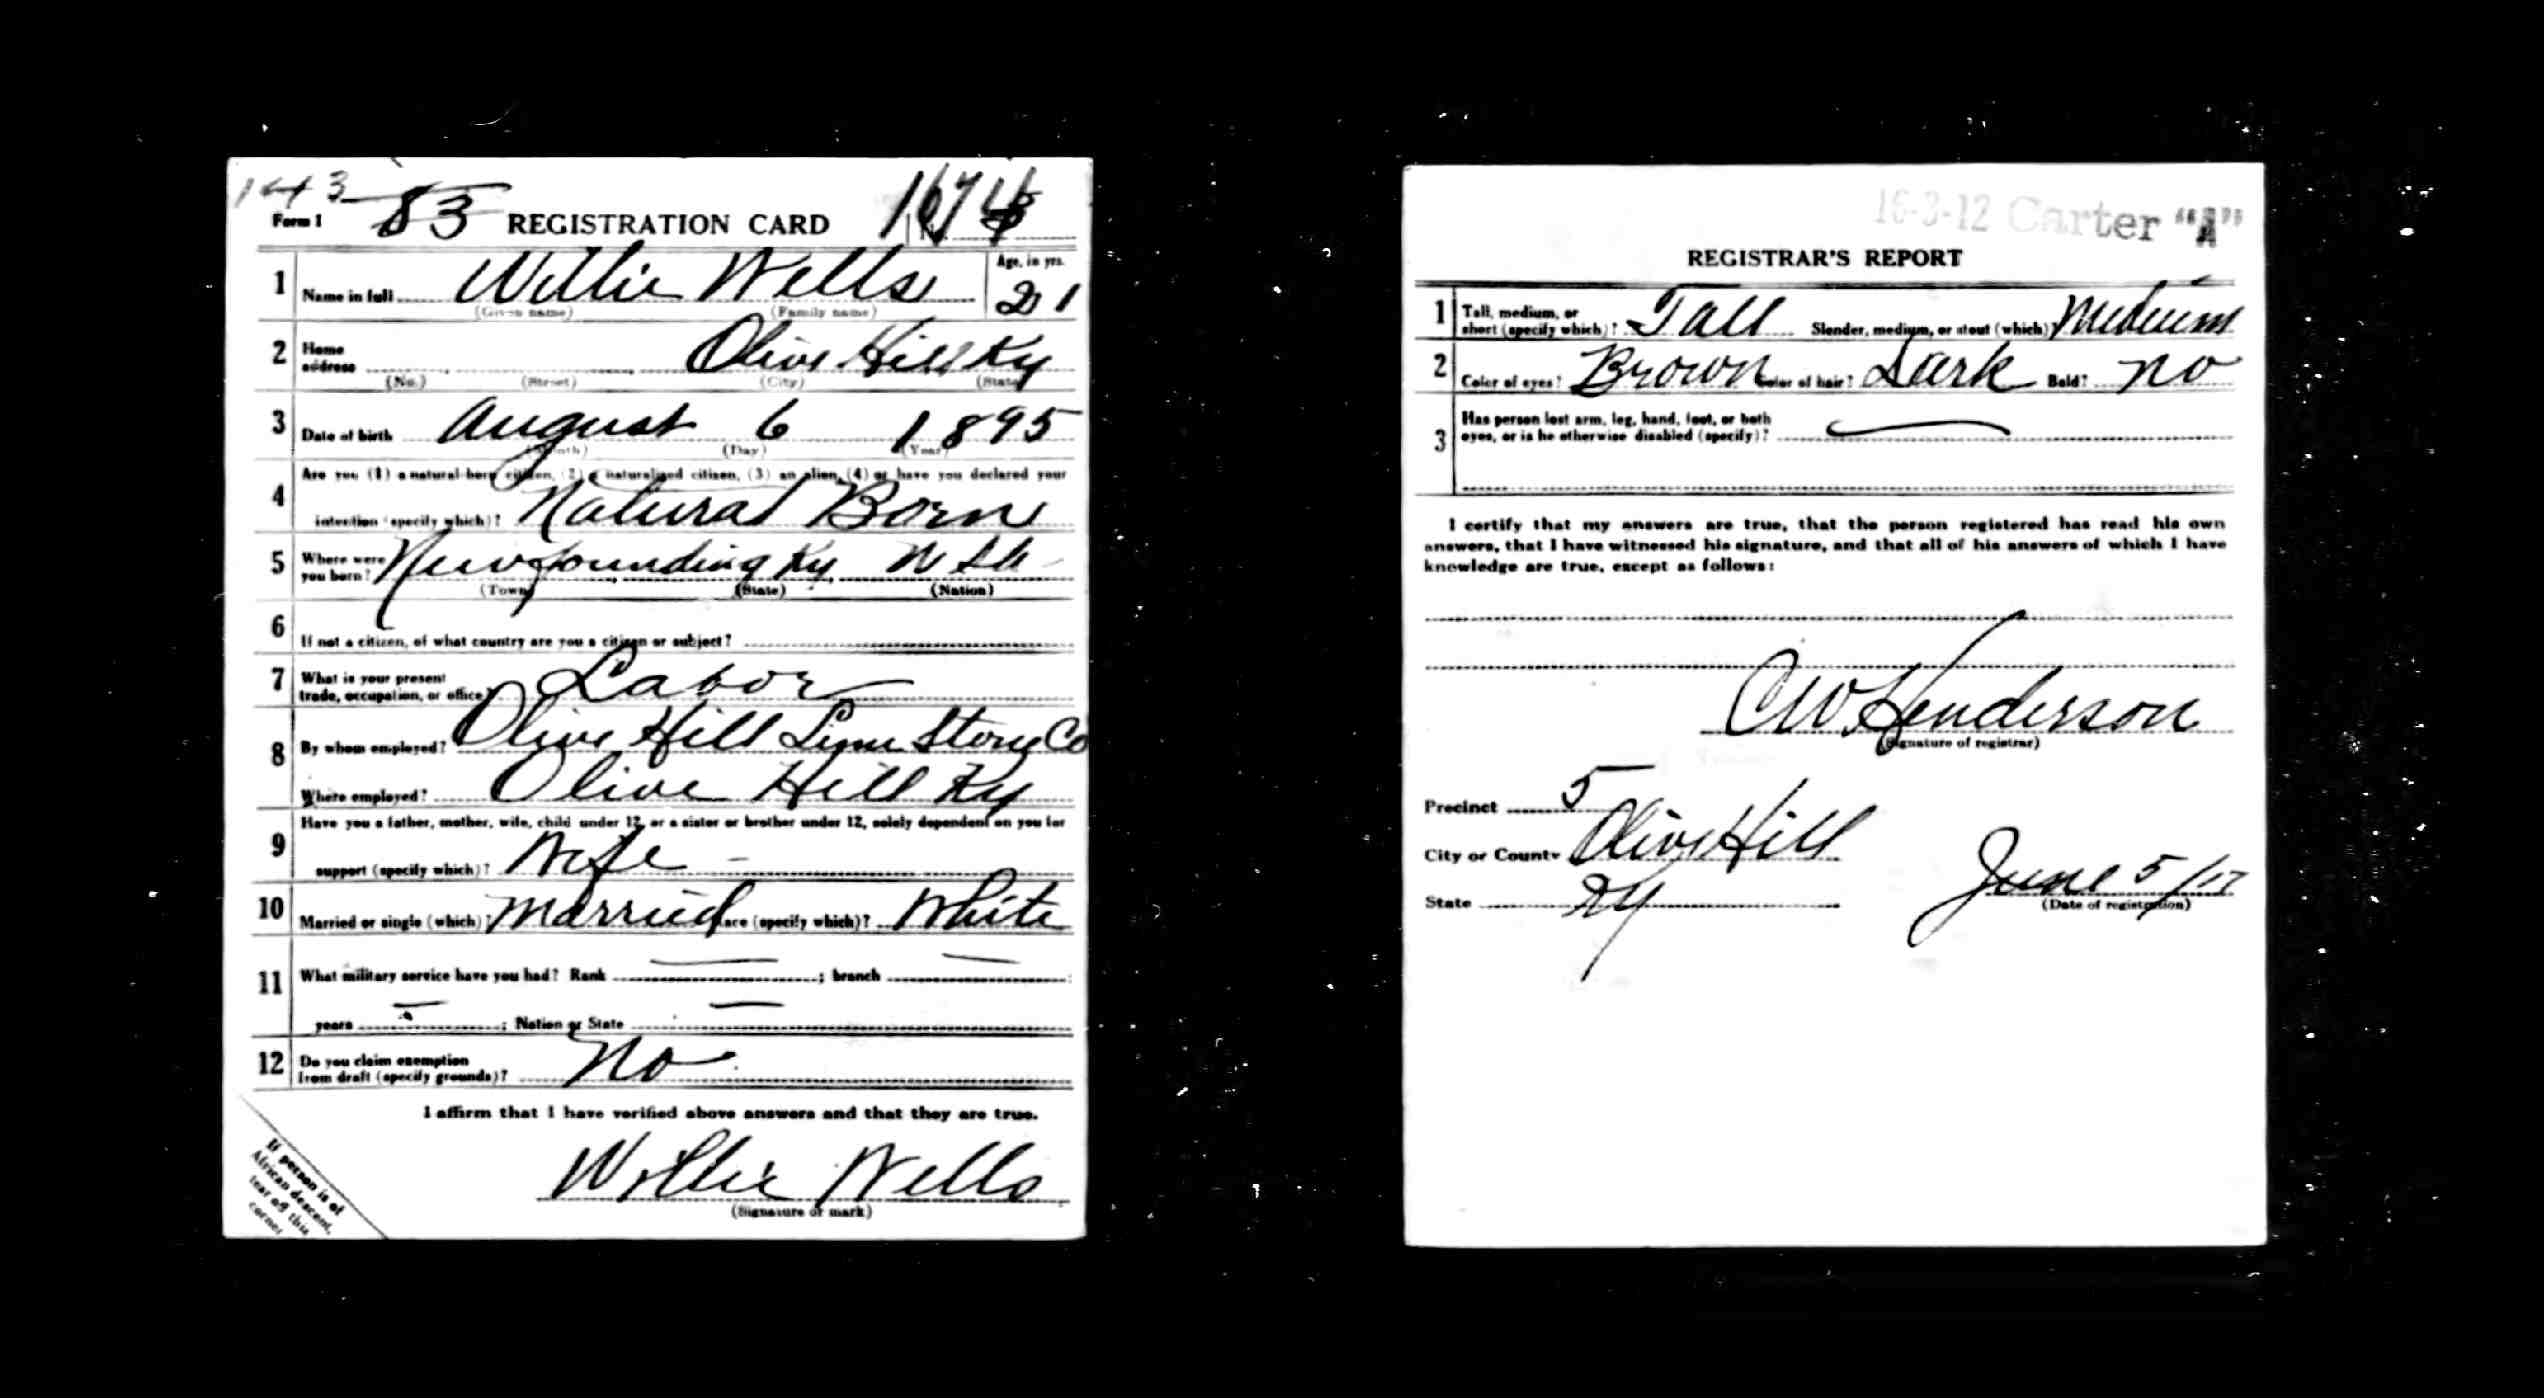 143
Form 1 83 REGISTRATION CARD
1 Name in full Willie Wells Age, in yrs. 21
(Given name) (Family name)
2 Home address Olive Hill Ky
(No.) (Street) (City) (State)
3 Date of birth August 6 1895
(Month) (Day) (Year)
4 Are you (1) a natural-born citizen, (2) a naturalized citizen, (3) an alien, (4) or have you declared your
intention (specify which)? Natural Born
5 Where were you born? Newfounding Ky
(Town) (State) (Nation)
6 If not a citizen, of what country are you a citizen or subject?
7 What is your present trade, occupation, or office? Labor
8 By whom employed? Olive Hill Lime Stone Co
Where employed? Olive Hill Ky
9 Have you a father, mother, wife, child under 12, or a sister or brother under 12, solely dependent on you for
support (specify which)? Wife -
10 Married or single (which)? Married Race (specify which)? White
11 What military service have you had? Rank — ; branch —
years — ; Nation or State —
12 Do you claim exemption from draft (specify grounds)? No
I affirm that I have verified above answers and that they are true.
Willie Wells
(Signature or mark)
If person is of
African descent,
tear off this
corner
16-3-12 Carter "A"
REGISTRAR'S REPORT
1 Tall, medium, or short (specify which)? Tall Slender, medium, or stout (which)? Medium
2 Color of eyes? Brown Color of hair? Dark Bald? no
3 Has person lost arm, leg, hand, foot, or both
eyes, or is he otherwise disabled (specify)? —
I certify that my answers are true, that the person registered has read his own
answers, that I have witnessed his signature, and that all of his answers of which I have
knowledge are true, except as follows:
CW Henderson
(Signature of registrar)
Precinct 5
City or County Olive Hill
State Ky June 5/17
(Date of registration)